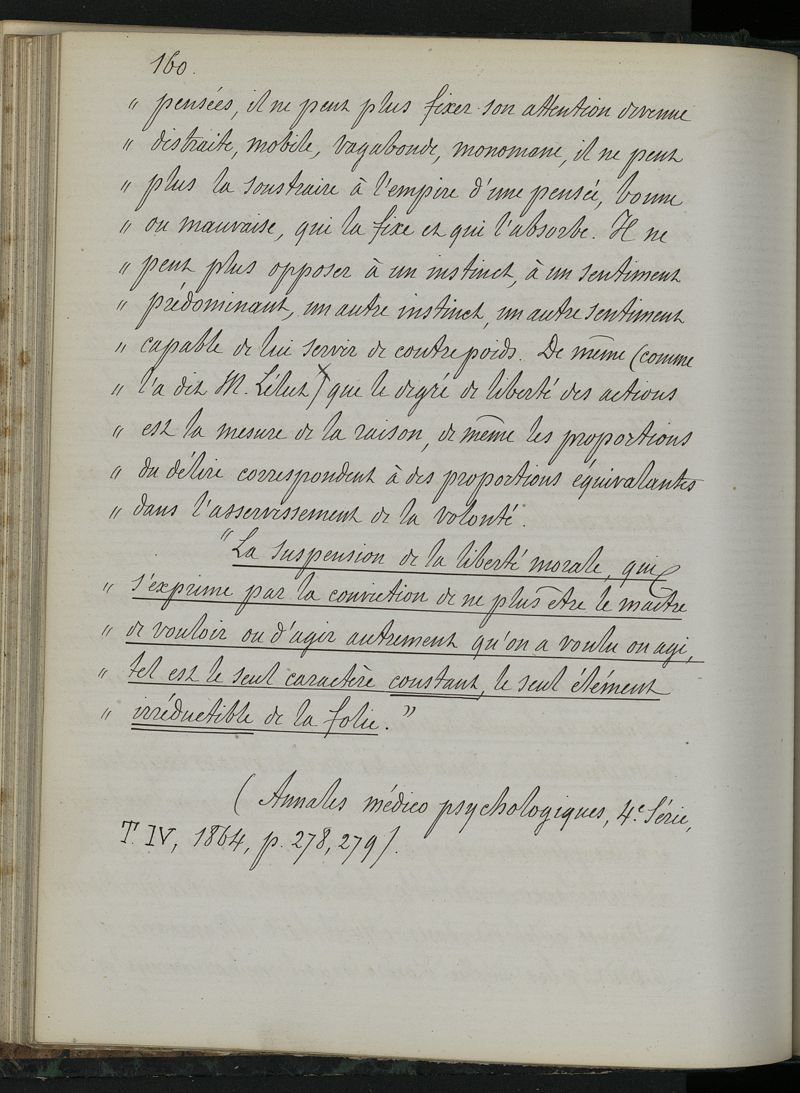 160.
" pensées, il ne peut plus fixer son attention devenue
" distraite, mobile, vagabonde, monomane, il ne peut
" plus la soustraire à l'empire d'une pensée, bonne
" ou mauvaise, qui la fixe et qui l'absorbe. Il ne
" peut plus opposer à un instinct, à un sentiment
" prédominant, un autre instinct, un autre sentiment
" capable de lui servir de contrepoids. De même (comme
" l'a dit M. Lélut) que le degré de liberté des actions
" est la mesure de la raison, de même les proportions
" du délire correspondent à des proportions équivalantes
" dans l'asservissement de la volonté.
"La suspension de la liberté morale, qui
" s'exprime par la conviction de ne plus être le maître
" de vouloir ou d'agir autrement qu'on a voulu ou agi,
" tel est le seul caractère constant, le seul élément
" irréductible de la folie."
(Annales médico psychologiques, 4.e Série,
T. IV, 1864, p. 278, 279).